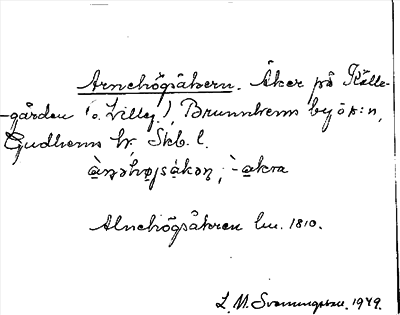 Arnehögsåkern. Åker på Källe-
-gården (o. Lilleg.), Brunnhems by ö k:n,
Gudhems hr, Skb. l.
à̤ṇəhøjsá̤kəṇ, `-a̤kra
Alnehögsåkren lm. 1810.
L. M. 1949.